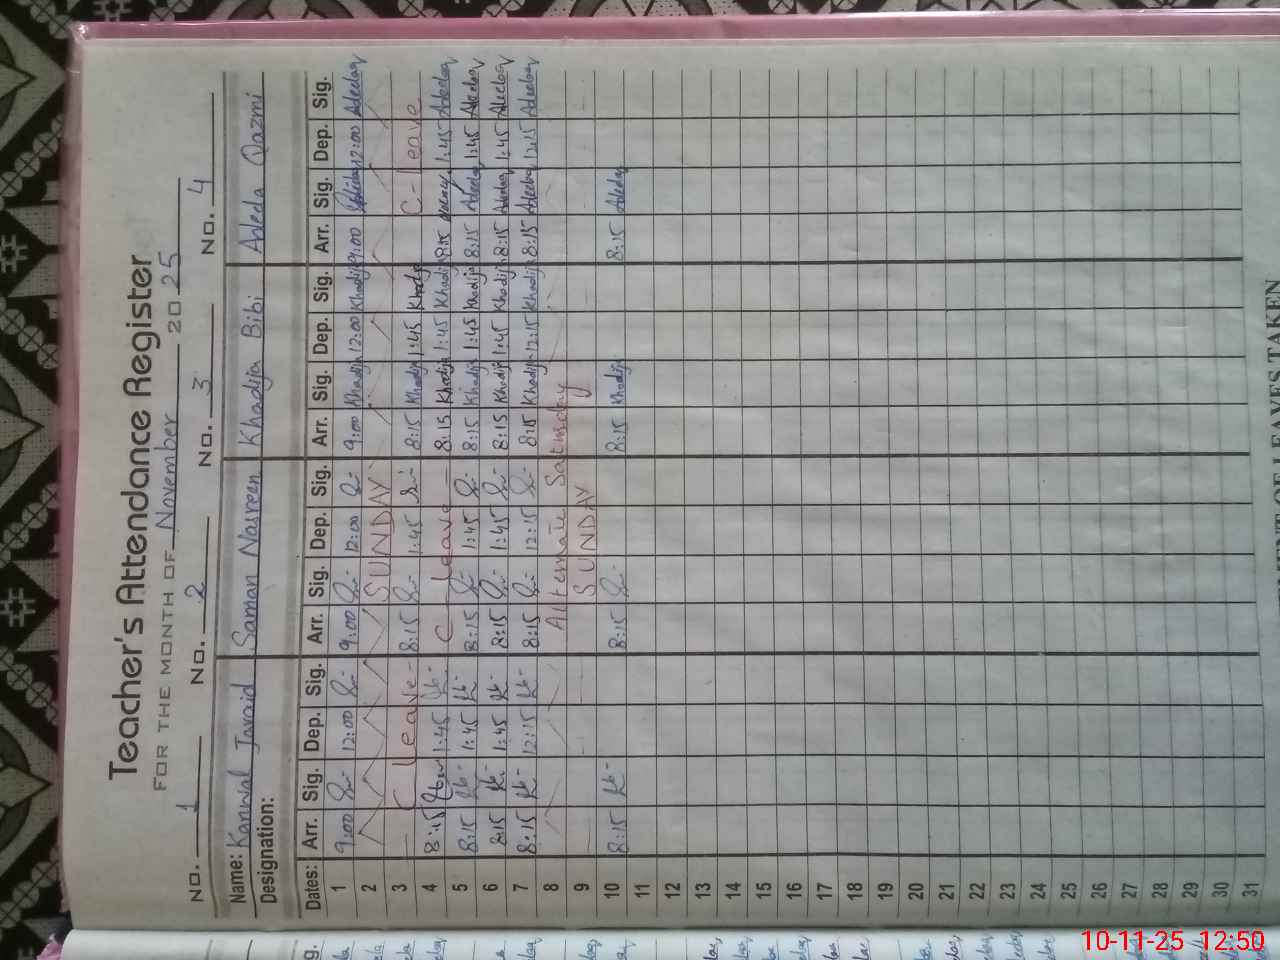 Teacher's Attendance Register
FOR THE MONTH OF November 20 25
NO. 1 NO. 2 NO. 3 NO. 4
Name: Kanwal Javaid Saman Nasreen Khadija Bibi Aleeda Qazmi
Designation:
Dates: Arr. Sig. Dep. Sig. Arr. Sig. Dep. Sig. Arr. Sig. Dep. Sig. Arr. Sig. Dep. Sig.
1 9:00 12:00 9:00 12:00 9:00 Khadija 12:00 Khadija 9:00 12:00 Aleedaq
2 SUNDAY
3 C leave 8:15 1:45 8:15 Khadija 1:45 Khadija C- leave
4 8:15 1:45 C leave 8:15 Khadija 1:45 Khadija 8:15 1:45 Aleedaq
5 8:15 1:45 8:15 1:45 8:15 Khadija 1:45 Khadija 8:15 Aleedaq 1:45 Aleedaq
6 8:15 1:45 8:15 1:45 8:15 Khadija 1:45 Khadija 8:15 Aleedaq 1:45 Aleedaq
7 8:15 12:15 8:15 12:15 8:15 Khadija 12:15 Khadija 8:15 Aleedaq 12:15 Aleedaq
8 Alternate Saturday
9 SUNDAY
10 8:15 8:15 8:15 Khadija 8:15 Aleedaq
11
12
13
14
15
16
17
18
19
20
21
22
23
24
25
26
27
28
29
30
31
LEAVES TAKEN
10-11-25 12:50